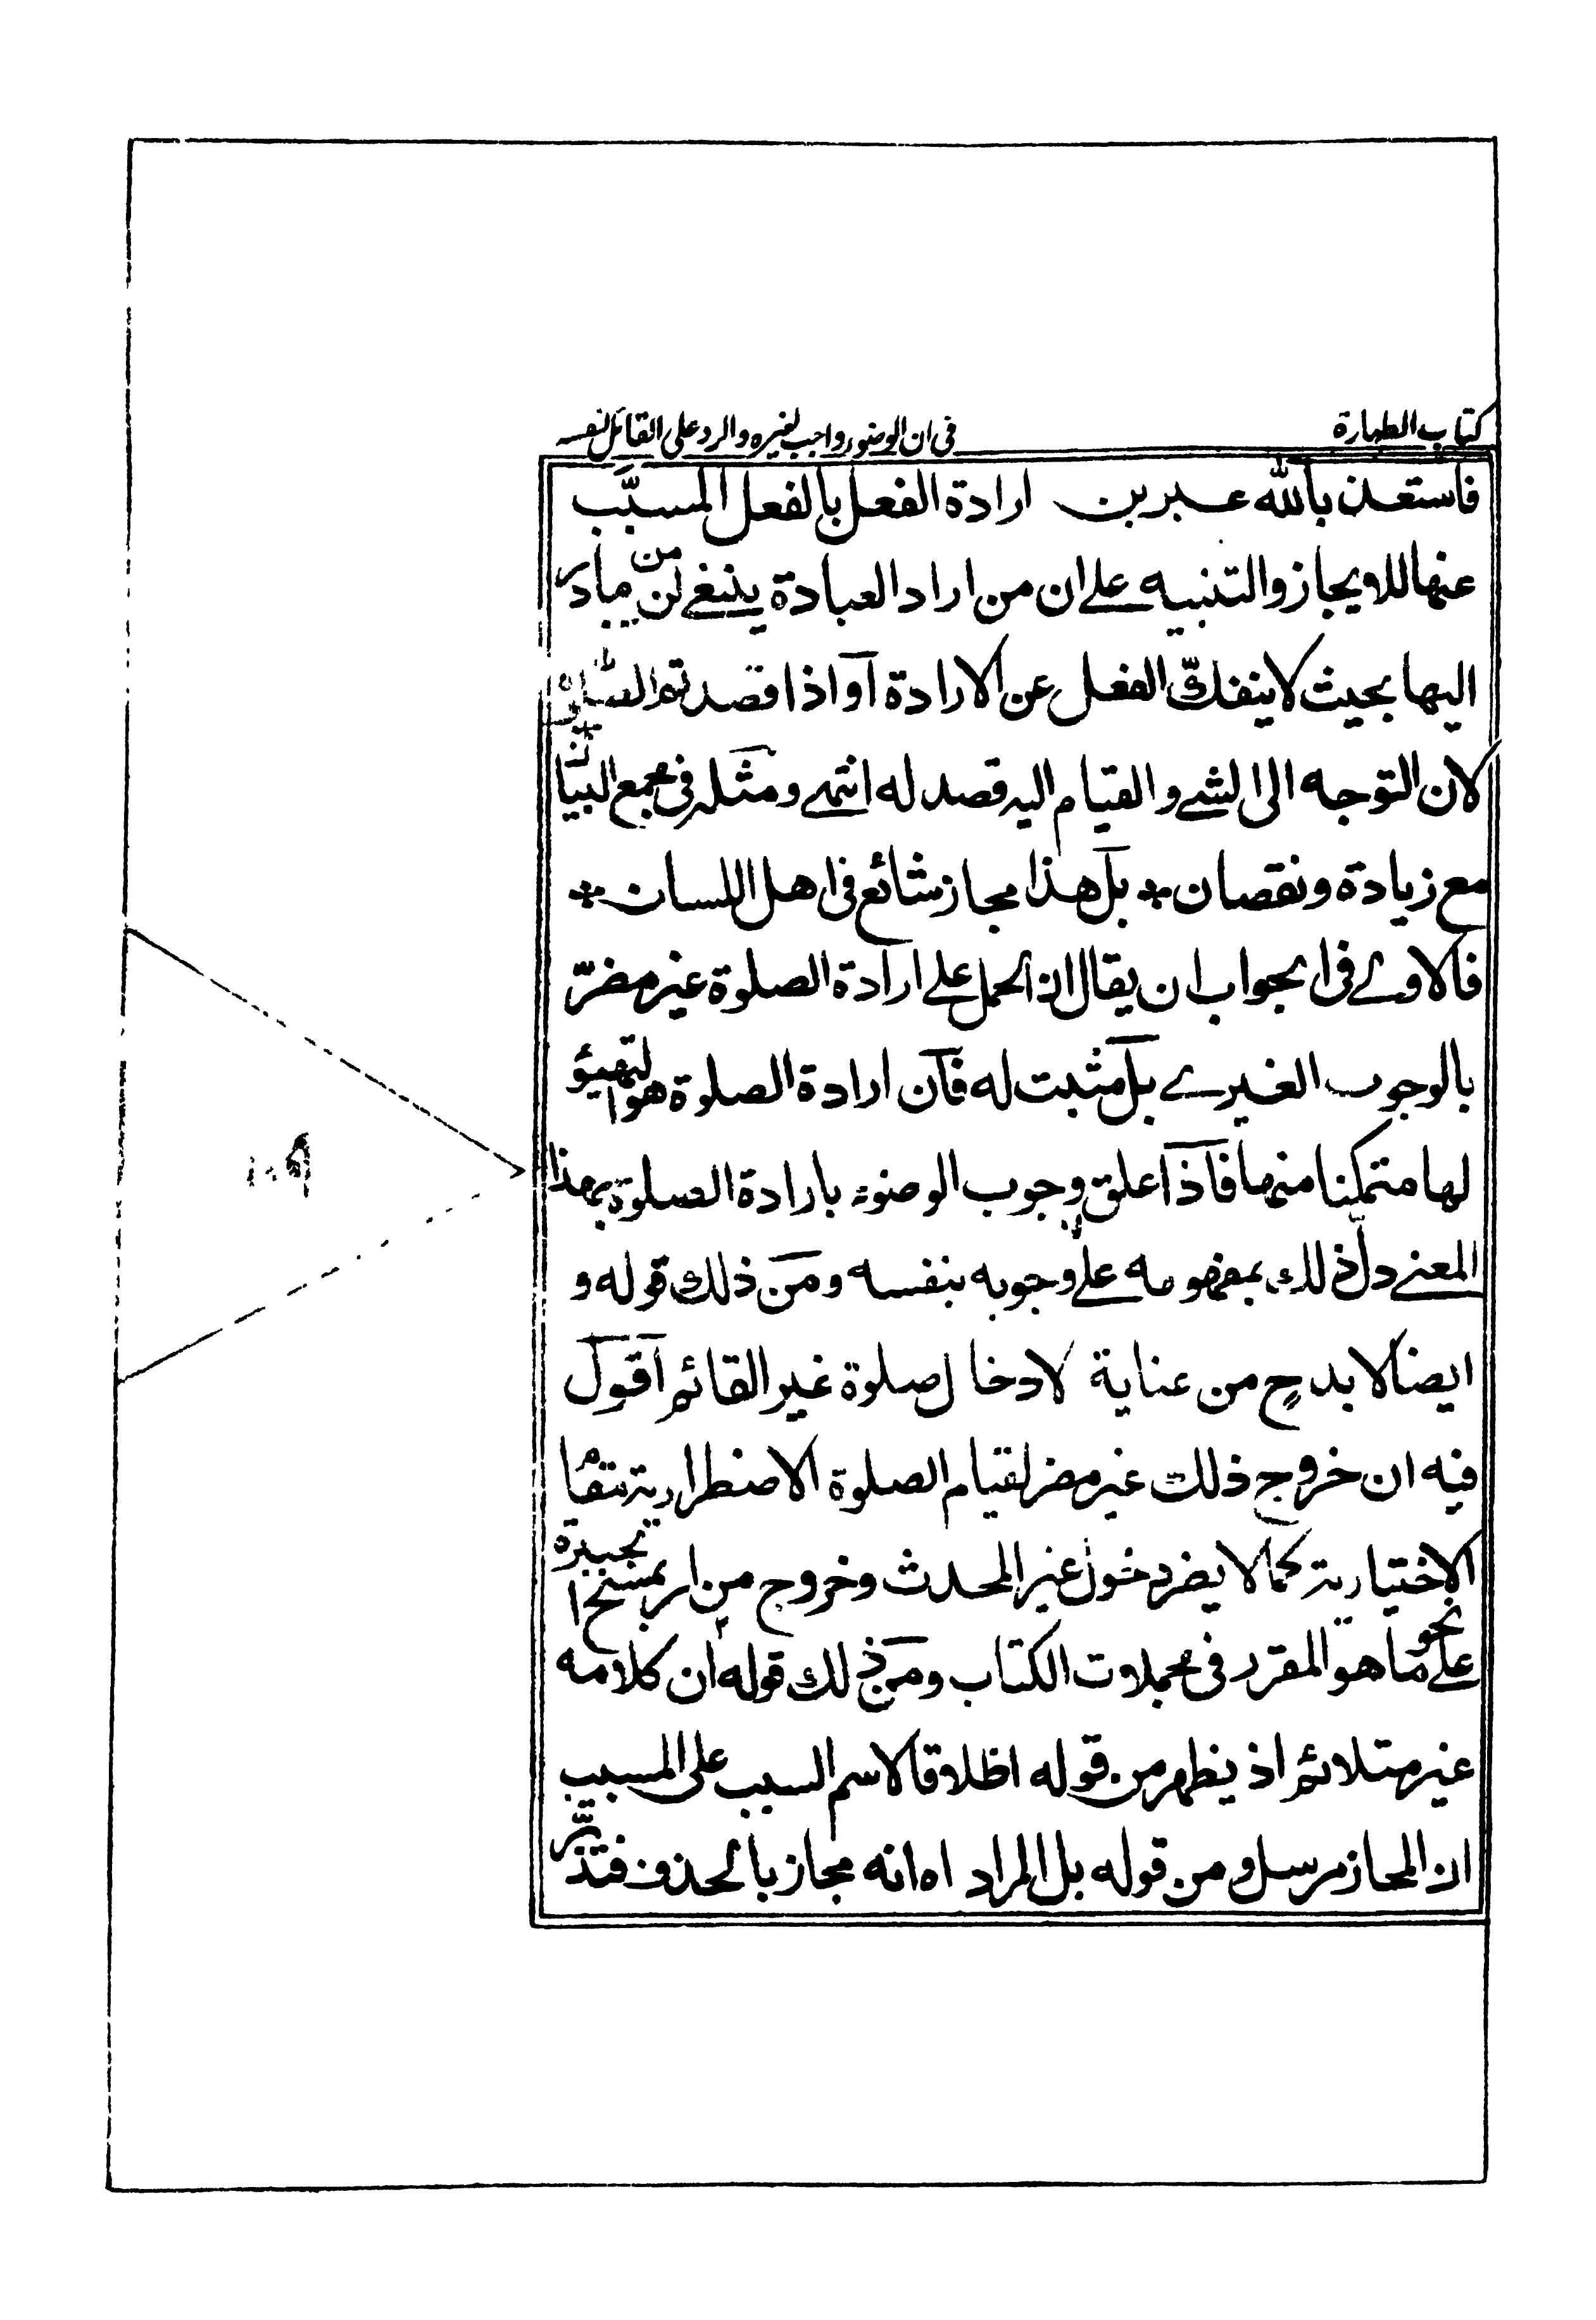 كتاب الطهارة
في ان الوضوء واجب لغيره والرد على القائل لنفسه
فاستعذ بالله عبر عن ارادة الفعل بالفعل المسبَّب
عنها للايجاز والتنبيه على ان من اراد العبادة ينبغي ان يبادر
اليها بحيث لا ينفكّ الفعل عن الارادة آو اذا قصدتم الصلوة
لان التوجه الى الشے والقيام اليه قصد له انتهے ومثله في مجمع البيان
مع زيادة ونقصان * بل هذا مجاز شائع في اهل اللسان *
فالاولے في الجواب ان يقال ان الحمل على ارادة الصلوة غير مضرّ
بالوجوب الغيرے بل مثبت له فآن ارادة الصلوة هو التهيؤ
لها متمكنا منها فآذا علق وجوب الوضوء بارادة الصلوة بهذا
المعنے دلّ ذلك بمفهومه على وجوبه بنفسه ومن ذلك قوله و
ايضا لا بد ح من عناية لادخال صلوة غير القائم آقول
فيه ان خروج ذلك غير مضر لقيام الصلوة الاضطرارية مقام
الاختيارية كما لا يضر دخول غير المحدث وخروج من امر بمسح الجبيرة
على نحو ما هو المقرر في مجملات الكتاب ومن ذلك قوله ان كلامه
غير متلائم اذ يظهر من قوله اطلاقا لاسم السبب على المسبب
ان المجاز مرسل ومن قوله بل المراد اه انه مجاز بالحذف فتدبّر
١٠٩